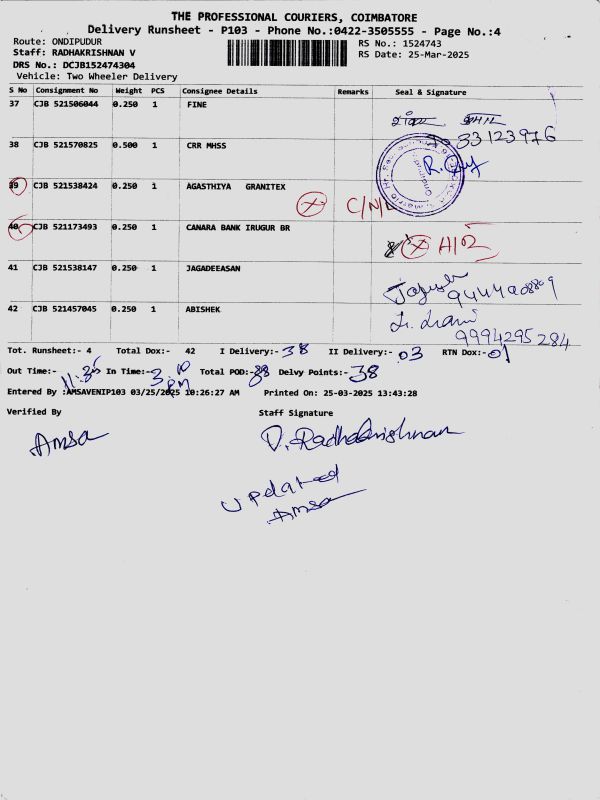 THE PROFESSIONAL COURIERS, COIMBATORE
Delivery Runsheet - P103 - Phone No.:0422-3505555 - Page No.:4
Route: ONDIPUDUR
RS No.: 1524743
Staff: RADHAKRISHNAN V
RS Date: 25-Mar-2025
DRS No.: DCJB152474304
Vehicle: Two Wheeler Delivery
S No Consignment No Weight PCS Consignee Details Remarks Seal & Signature
37 CJB 521506044 0.250 1 FINE
33123976
38 CJB 521570825 0.500 1 CRR MHSS
39 CJB 521538424 0.250 1 AGASTHIYA GRANITEX
C/N/L
40 CJB 521173493 0.250 1 CANARA BANK IRUGUR BR
41 CJB 521538147 0.250 1 JAGADEEASAN
42 CJB 521457045 0.250 1 ABISHEK
9994295284
Tot. Runsheet:- 4 Total Dox:- 42 I Delivery:- 38 II Delivery:- 03 RTN Dox:- 01
Out Time:- 11:35 In Time:- 3:10 PM Total POD:- 38 Delvy Points:- 38
Entered By :AMSAVENIP103 03/25/2025 10:26:27 AM Printed On: 25-03-2025 13:43:28
Verified By Staff Signature
Amsa V. Radhakrishnan
Updated
Amsa